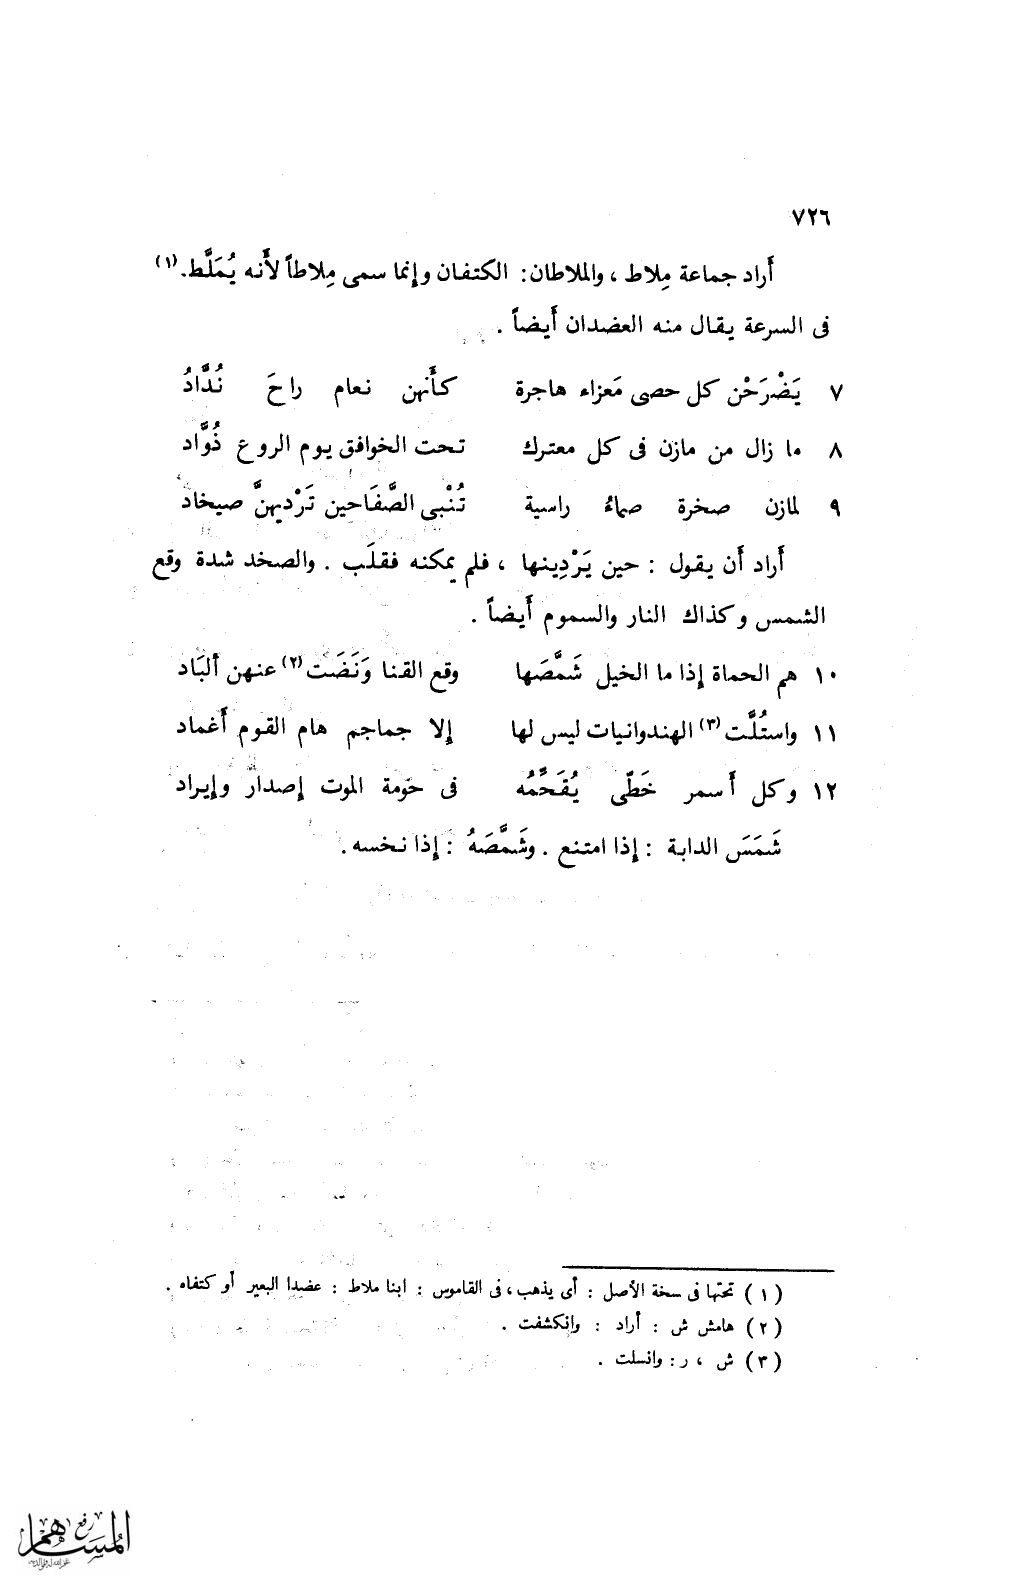 ٧٢٦
أَراد جماعة مِلاط ، والملاطان: الكتفان وإنما سمى مِلاطاً لأَنه يُمَلَّط.(١)
فى السرعة يقال منه العضدان أَيضاً .
٧ يَضْرَحْن كل حصى مَعزاء هاجرة كأَنهن نعام راحَ نُدَّادُ
٨ ما زال من مازن فى كل معترك تحت الخوافق يوم الروع ذُوَّاد
٩ لمازن صخرة صماءُ راسية تُنْبى الصَّفَاحين تَرْديهنَّ صيخاد
أَراد أَن يقول : حين يَرْدِينها ، فلم يمكنه فقلَب . والصخد شدة وقع
الشمس وكذاك النار والسموم أَيضاً .
١٠ هم الحماة إذا ما الخيل شَمَّصَها وقع القنا وَنَضَت(٢) عنهن ألبَاد
١١ واستُلَّت(٣) الهندوانيات ليس لها إلا جماجم هام القوم أَغماد
١٢ وكل أَسمر خَطّى يُقَحِّمُه فى حَومة الموت إصدار وإيراد
شَمَسَ الدابة : إذا امتنع . وشَمَّصَهُ : إذا نخسه .
(١) تحتها فى سخة الأصل : أى يذهب، فى القاموس : ابنا ملاط : عضدا البعير أو كتفاه .
(٢) هامش ش : أراد : وانكشفت .
(٣) ش ، ر : وانسلت .
رفع
المساهم